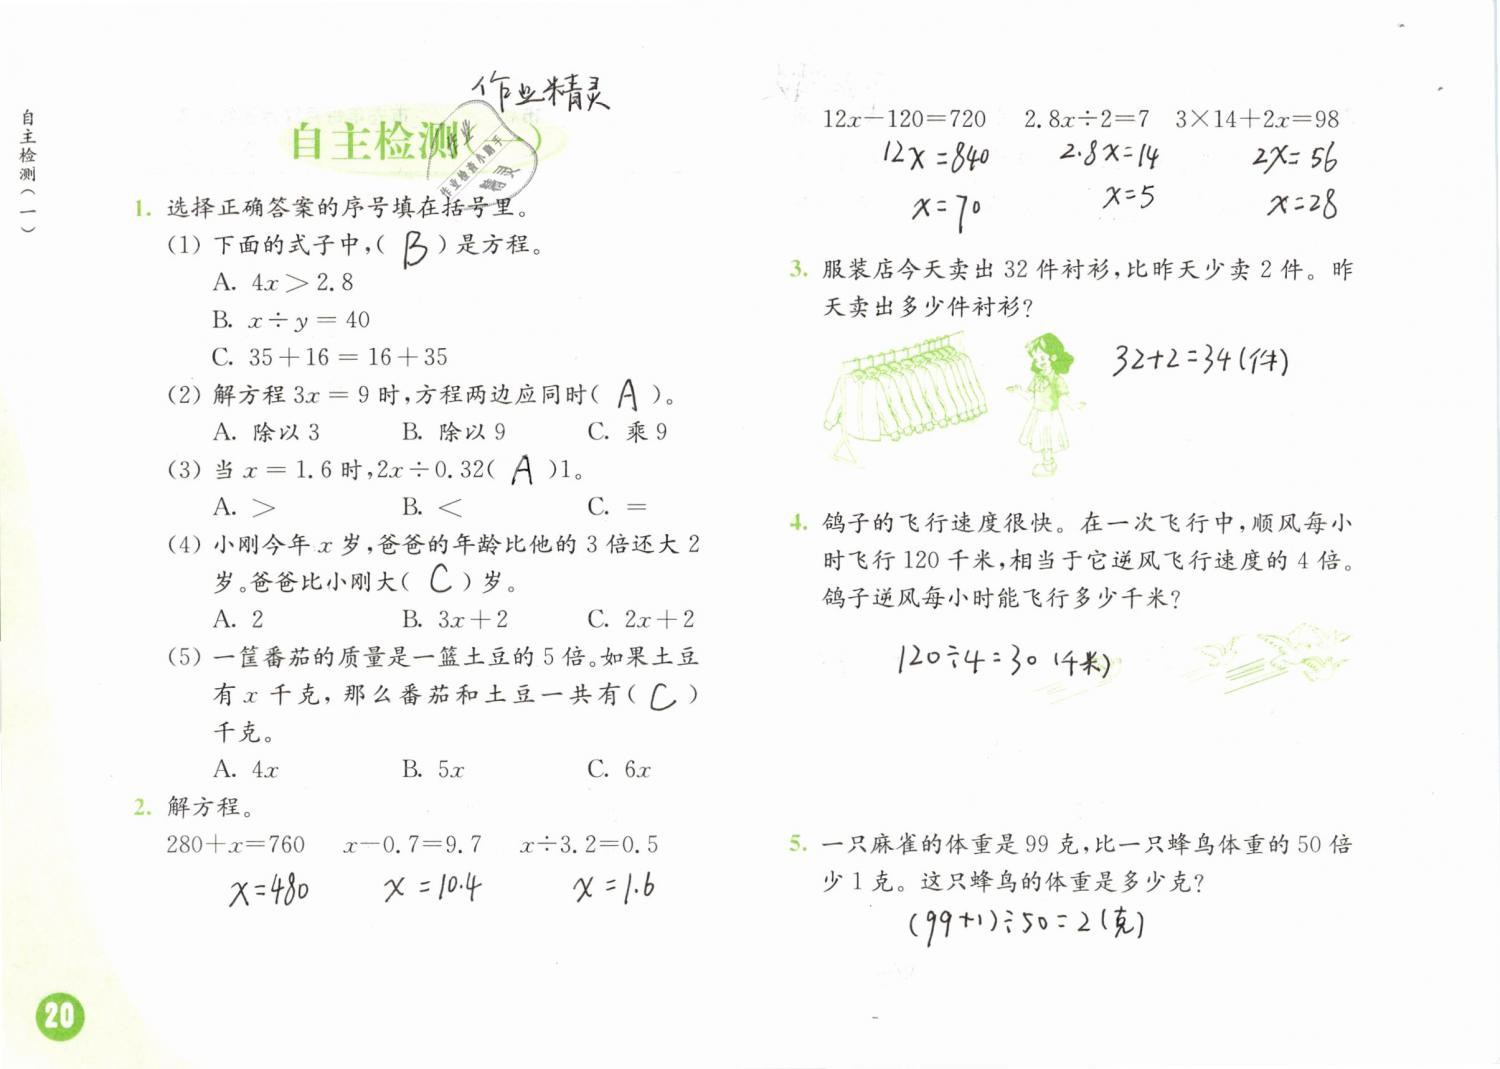 作业精灵
自主检测(一)
自主检测(一)
1. 选择正确答案的序号填在括号里。
(1) 下面的式子中,( B )是方程。
A. 4x＞2.8
B. x÷y＝40
C. 35＋16＝16＋35
(2) 解方程 3x＝9 时,方程两边应同时( A )。
A. 除以 3 B. 除以 9 C. 乘 9
(3) 当 x＝1.6 时,2x÷0.32( A )1。
A. ＞ B. ＜ C. ＝
(4) 小刚今年 x 岁,爸爸的年龄比他的 3 倍还大 2
岁。爸爸比小刚大( C )岁。
A. 2 B. 3x＋2 C. 2x＋2
(5) 一筐番茄的质量是一篮土豆的 5 倍。如果土豆
有 x 千克,那么番茄和土豆一共有( C )
千克。
A. 4x B. 5x C. 6x
2. 解方程。
280＋x＝760 x－0.7＝9.7 x÷3.2＝0.5
x=480 x=10.4 x=1.6
20
12x－120＝720 2.8x÷2＝7 3×14＋2x＝98
12x=840 2.8x=14 2x=56
x=70 x=5 x=28
3. 服装店今天卖出 32 件衬衫,比昨天少卖 2 件。昨
天卖出多少件衬衫?
32+2=34(件)
4. 鸽子的飞行速度很快。在一次飞行中,顺风每小
时飞行 120 千米,相当于它逆风飞行速度的 4 倍。
鸽子逆风每小时能飞行多少千米?
120÷4=30(千米)
5. 一只麻雀的体重是 99 克,比一只蜂鸟体重的 50 倍
少 1 克。这只蜂鸟的体重是多少克?
(99+1)÷50=2(克)